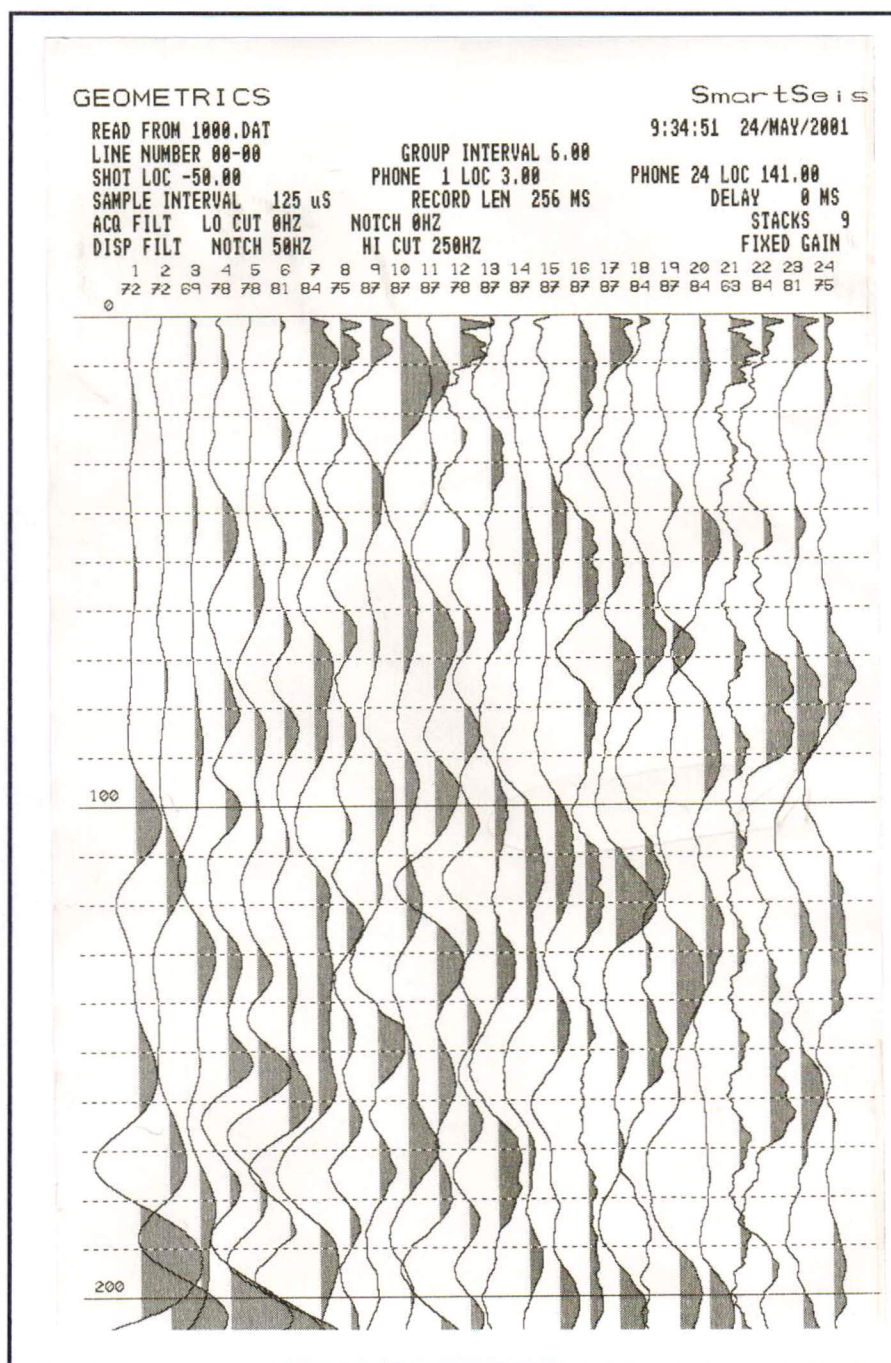 GEOMETRICS SmartSeis
READ FROM 1000.DAT 9:34:51 24/MAY/2001
LINE NUMBER 00-00 GROUP INTERVAL 6.00
SHOT LOC -50.00 PHONE 1 LOC 3.00 PHONE 24 LOC 141.00
SAMPLE INTERVAL 125 uS RECORD LEN 256 MS DELAY 0 MS
ACQ FILT LO CUT 0HZ NOTCH 0HZ STACKS 9
DISP FILT NOTCH 50HZ HI CUT 250HZ FIXED GAIN
1 2 3 4 5 6 7 8 9 10 11 12 13 14 15 16 17 18 19 20 21 22 23 24
72 72 69 78 78 81 84 75 87 87 87 78 87 87 87 87 87 84 87 84 63 84 81 75
0
100
200